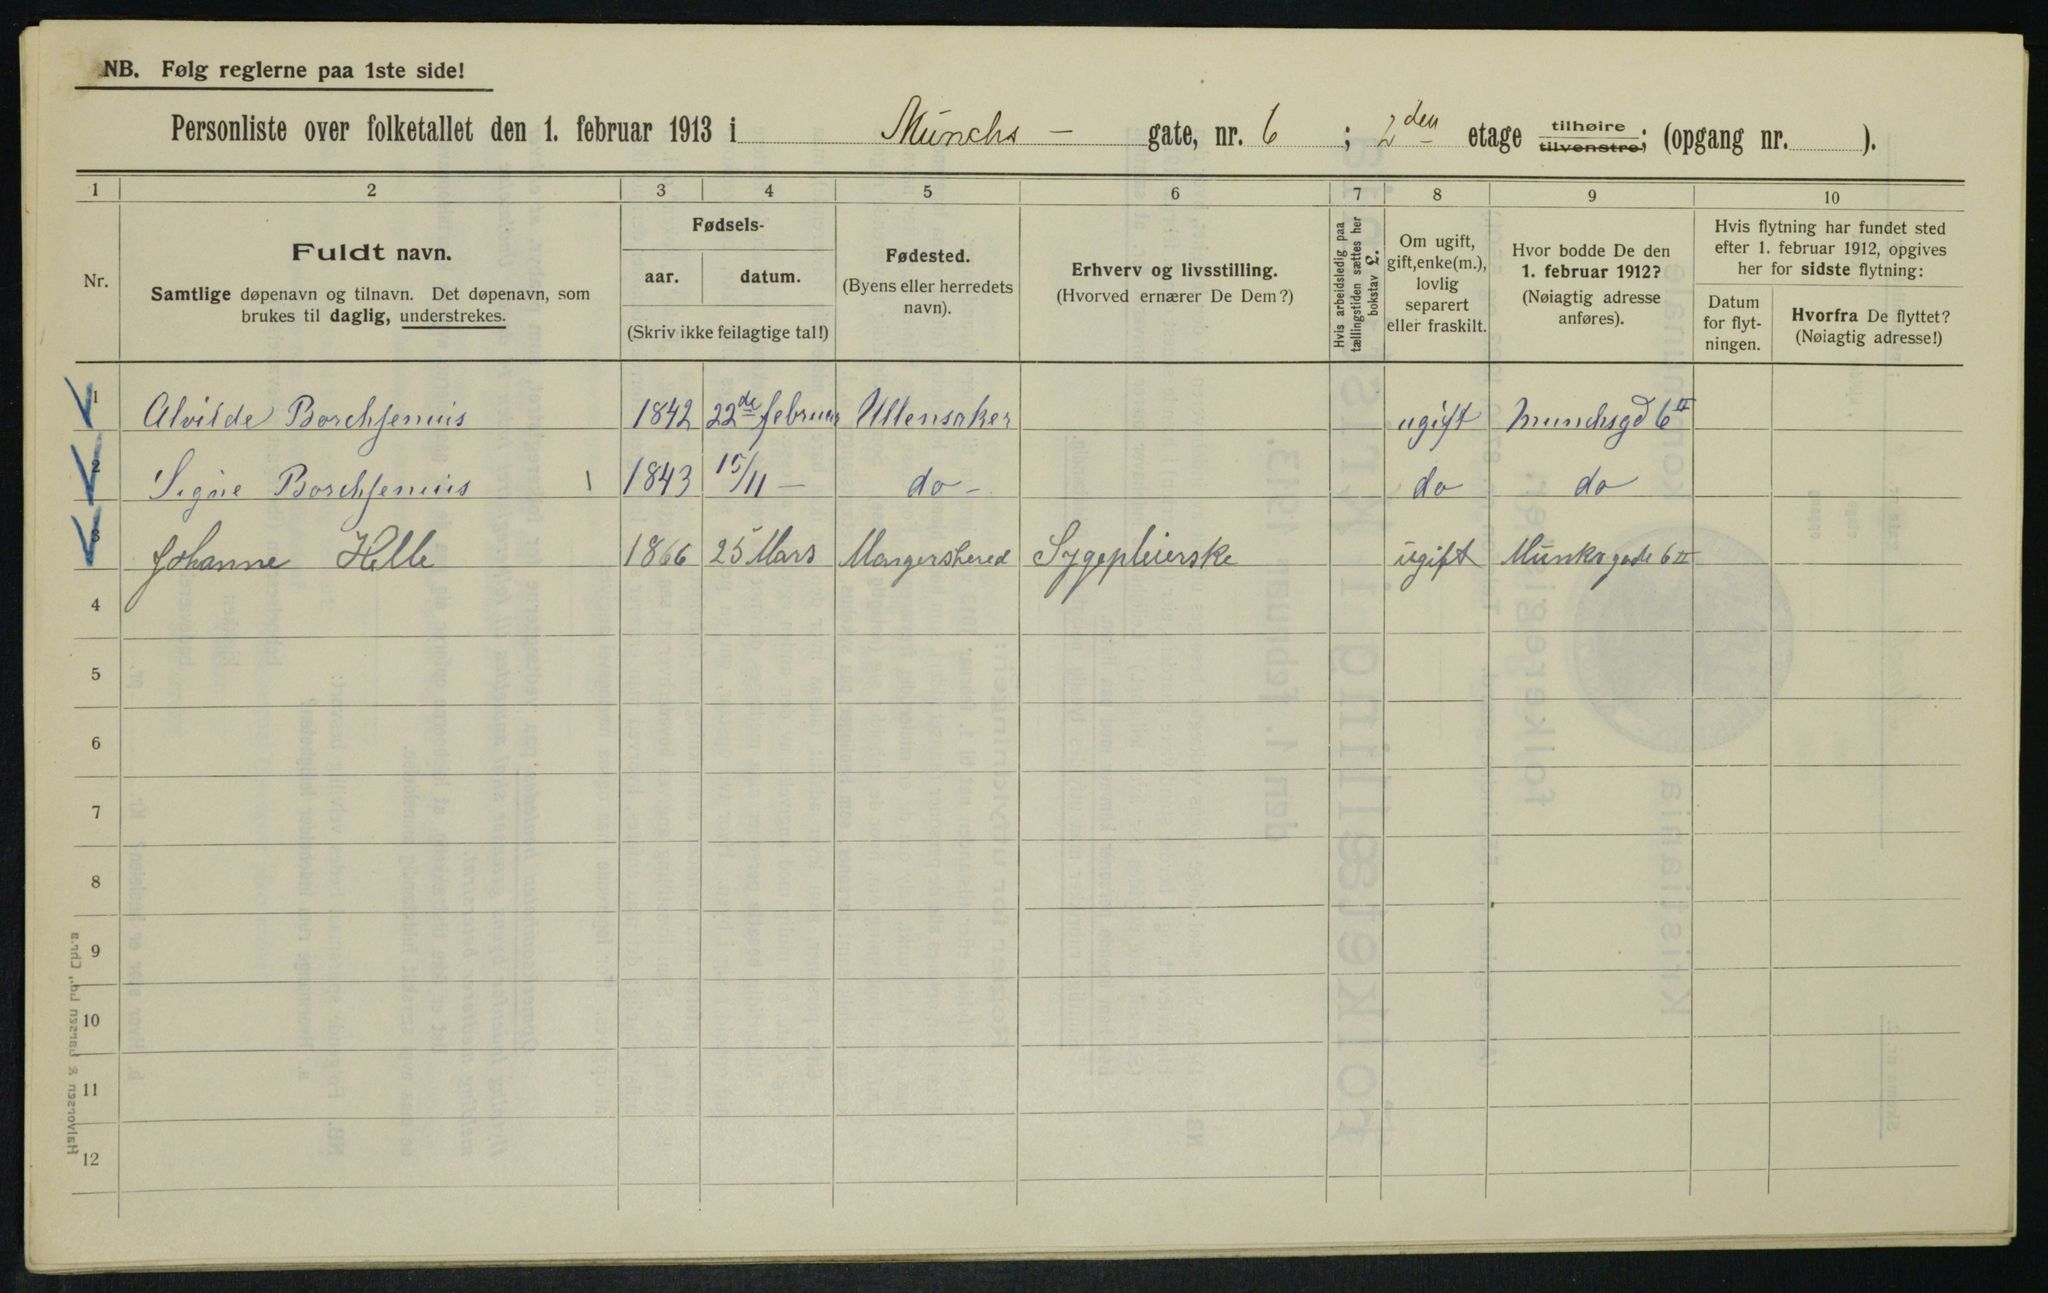 NB. Følg reglerne paa 1ste side!
Personliste over folketallet den 1. februar 1913 i Munchs – gate, nr. 6 ; 2den etage tilhøire tilvenstre; (opgang nr. ).
1 2 3 4 5 6 7 8 9 10
Nr.
Fuldt navn.
Samtlige døpenavn og tilnavn. Det døpenavn, som
brukes til daglig, understrekes.
Fødsels-
aar. datum.
(Skriv ikke feilagtige tal!)
Fødested.
(Byens eller herredets
navn).
Erhverv og livsstilling.
(Hvorved ernærer De Dem?)
Hvis arbeidsledig paa
tællingstiden sættes her
bokstav L.
Om ugift,
gift, enke(m.),
lovlig
separert
eller fraskilt.
Hvor bodde De den
1. februar 1912?
(Nøiagtig adresse
anføres).
Hvis flytning har fundet sted
efter 1. februar 1912, opgives
her for sidste flytning:
Datum
for flyt-
ningen.
Hvorfra De flyttet?
(Nøiagtig adresse!)
1 Alvilde Borchsenius 1842 22de februar Ullensaker ugift Munchsgd 6 II
2 Signe Borchsenius 1843 15/11 – do – do do
3 Johanne Helle 1866 25 Mars Mangersherred Sygepleierske ugift Munksgade 6 II
4
5
6
7
8
9
10
11
12
Halvorsen & Larsen Ld., Chr.a